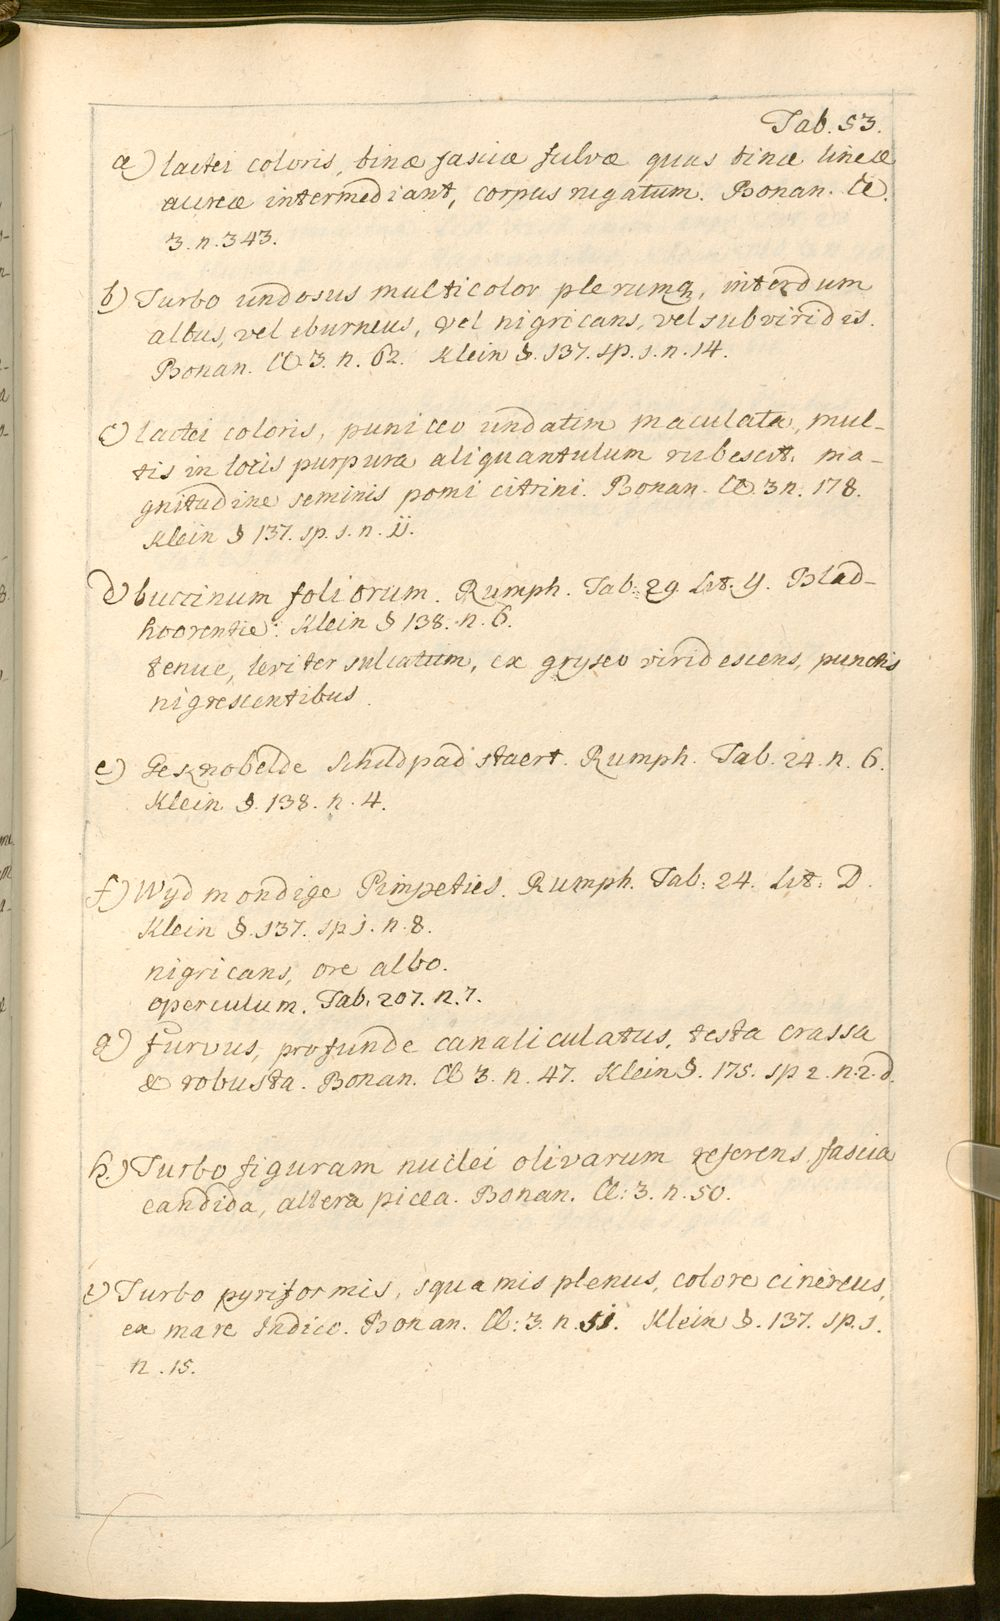 Tab. 53.
a) lactei coloris, binæ fasciæ fulvæ quas binæ lineæ
aureæ intermediant, corpus rugatum. Bonan. Cl.
3. n. 343.
b) Turbo undosus multicolor plerumq, interdum
albus, vel eburneus, vel nigricans, vel subviridis.
Bonan. Cl. 3. n. 62. Klein §. 137. sp. 1. n. 14.
c) lactei coloris, puniceo undatim maculata, mul-
tis in locis purpura aliquantulum rubescit. ma-
gnitudine seminis pomi citrini. Bonan. Cl. 3 n. 178.
Klein § 137. sp. 1. n. 11.
d) buccinum foliorum. Rumph. Tab. 29. Lit. Y. Blad-
hoorentie. Klein § 138. n. 6.
tenue, leviter sulcatum, ex gryseo viridescens, punctis
nigrescentibus.
e) Geknobelde Schildpadstaert. Rumph. Tab. 24. n. 6.
Klein §. 138. n. 4.
f) Wydmondige Pimpeties. Rumph. Tab. 24. Lit. D.
Klein §. 137. sp 1. n. 8.
nigricans, ore albo.
operculum. Tab. 207. n. 7.
g) furvus, profunde canaliculatus, testa crassa
& robusta. Bonan. Cl 3. n. 47. Klein §. 175. sp 2. n. 2. d.
h.) Turbo figuram nuclei olivarum referens, fascia
candida, altera picea. Bonan. Cl: 3. n. 50.
i) Turbo pyriformis, squamis plenus, colore cinereus,
ex mare Indico. Bonan. Cl: 3. n. 51. Klein §. 137. sp. 1.
n. 15.